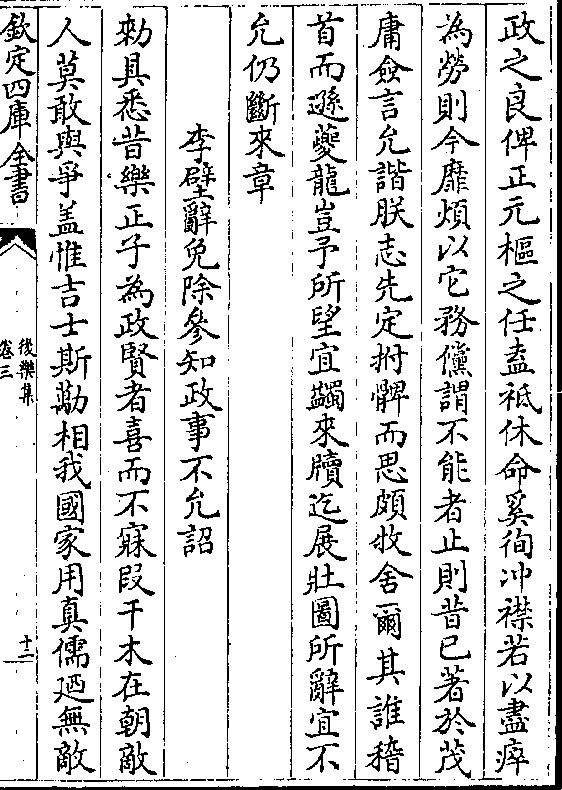 政之良俾正元樞之任盍祗休命奚徇冲襟若以盡瘁
為勞則今靡煩以它務儻謂不能者止則昔已著於茂
庸僉言允諧朕志先定拊髀而思頗牧舍爾其誰稽
首而遜夔龍豈予所望宜蠲來牘迄展壯圖所辭宜不
允仍斷來章
李壁辭免除參知政事不允詔
勑具悉昔樂正子為政賢者喜而不寐段干木在朝敵
人莫敢與爭盖惟吉士斯勱相我國家用真儒廼無敵
欽定四庫全書
後樂集
卷三
十二